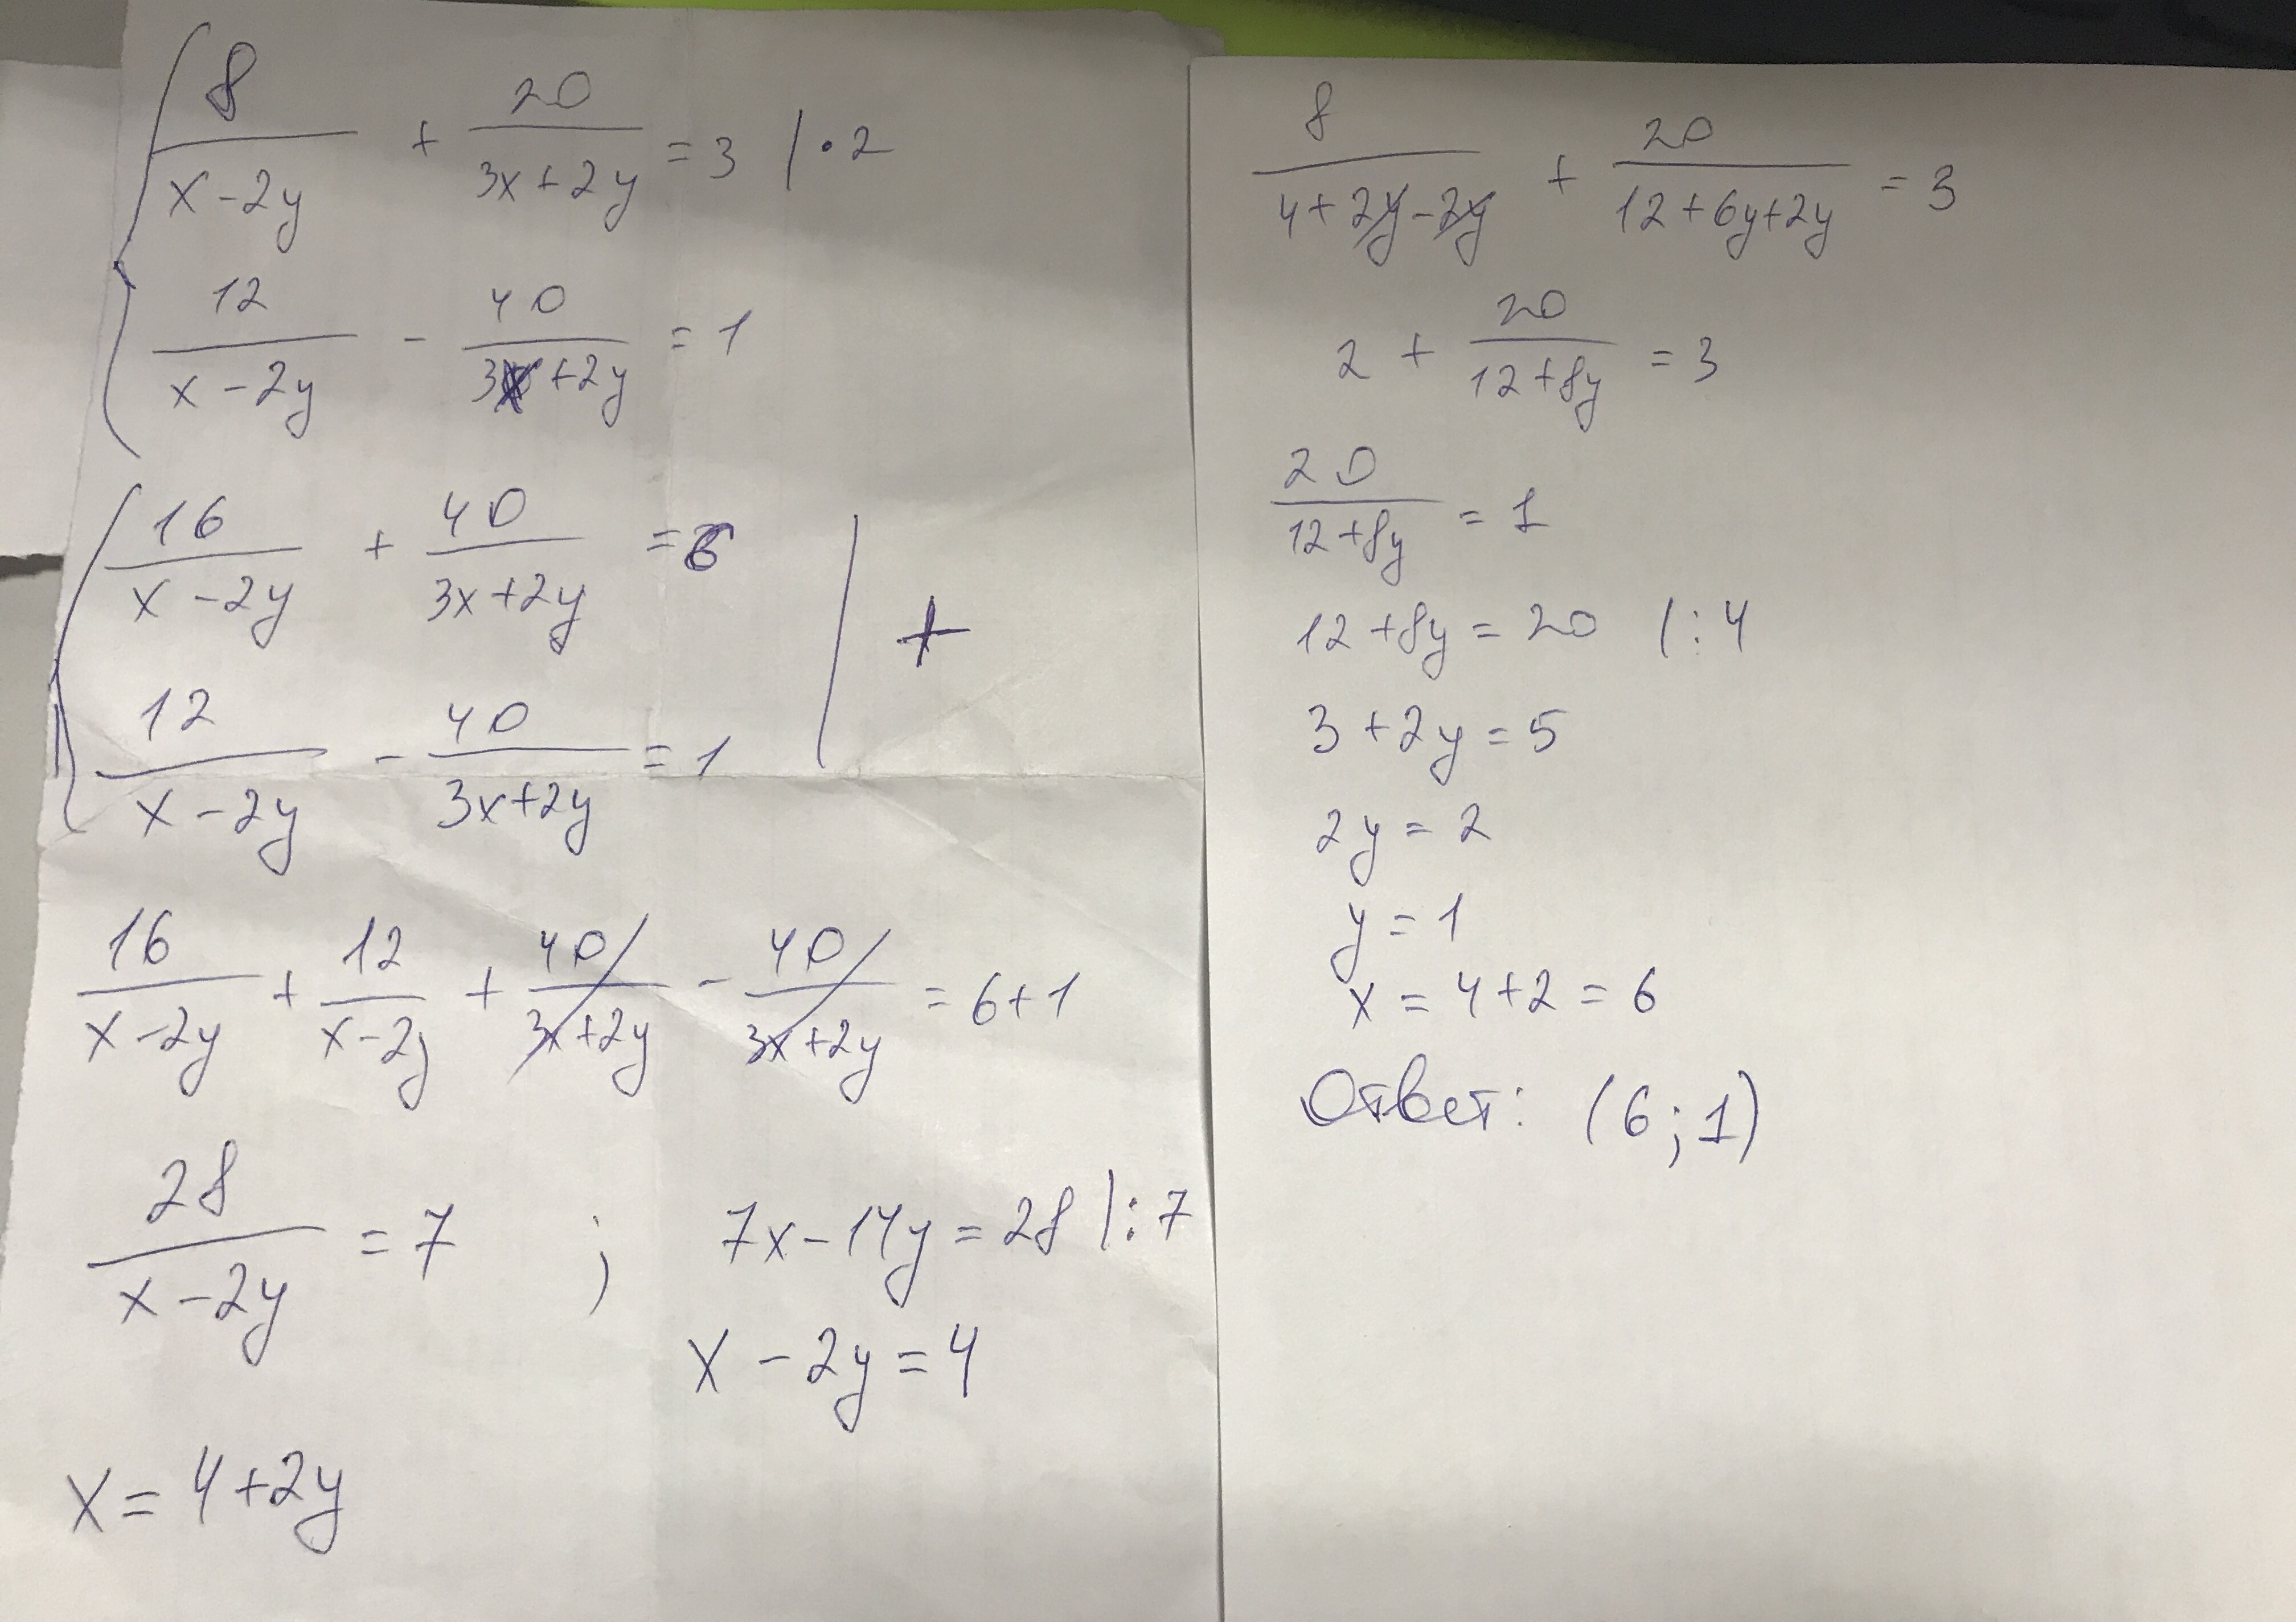 8/(x-2y) + 20/(3x+2y) = 3 | • 2
12/(x-2y) - 40/(3x+2y) = 1
16/(x-2y) + 40/(3x+2y) = 6
12/(x-2y) - 40/(3x+2y) = 1 | +
16/(x-2y) + 12/(x-2y) + 40/(3x+2y) - 40/(3x+2y) = 6+1
28/(x-2y) = 7 ; 7x-14y = 28 |:7
x - 2y = 4
x = 4+2y
8/(4+2y-2y) + 20/(12+6y+2y) = 3
2 + 20/(12+8y) = 3
20/(12+8y) = 1
12+8y = 20 |:4
3+2y = 5
2y = 2
y = 1
x = 4+2 = 6
Ответ: (6;1)